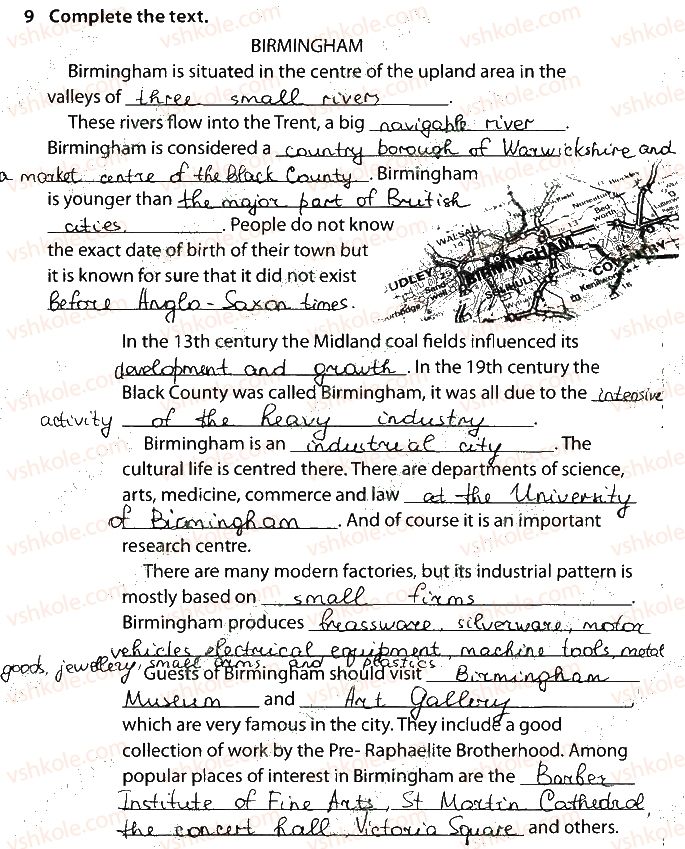 9 Complete the text.
BIRMINGHAM
Birmingham is situated in the centre of the upland area in the
valleys of three small rivers.
These rivers flow into the Trent, a big navigable river.
Birmingham is considered a country borough of Warwickshire and
a market centre of the Black County. Birmingham
is younger than the major part of British
cities. People do not know
the exact date of birth of their town but
it is known for sure that it did not exist
before Anglo-Saxon times.
WALSALL
UDLEY
BIRMINGHAM
COVENTRY
In the 13th century the Midland coal fields influenced its
development and growth. In the 19th century the
Black County was called Birmingham, it was all due to the intensive
activity of the heavy industry.
Birmingham is an industrial city. The
cultural life is centred there. There are departments of science,
arts, medicine, commerce and law at the University
of Birmingham. And of course it is an important
research centre.
There are many modern factories, but its industrial pattern is
mostly based on small firms
Birmingham produces breassware, silverware, motor
vehicles electrical equipment, machine tools, metal
goods, jewellery, small arms, and plastics.
Guests of Birmingham should visit Birmingham
Museum and Art Gallery
which are very famous in the city. They include a good
collection of work by the Pre- Raphaelite Brotherhood. Among
popular places of interest in Birmingham are the Barber
Institute of Fine Arts, St Martin Cathedral,
the concert hall, Victoria Square and others.
vshkole.com